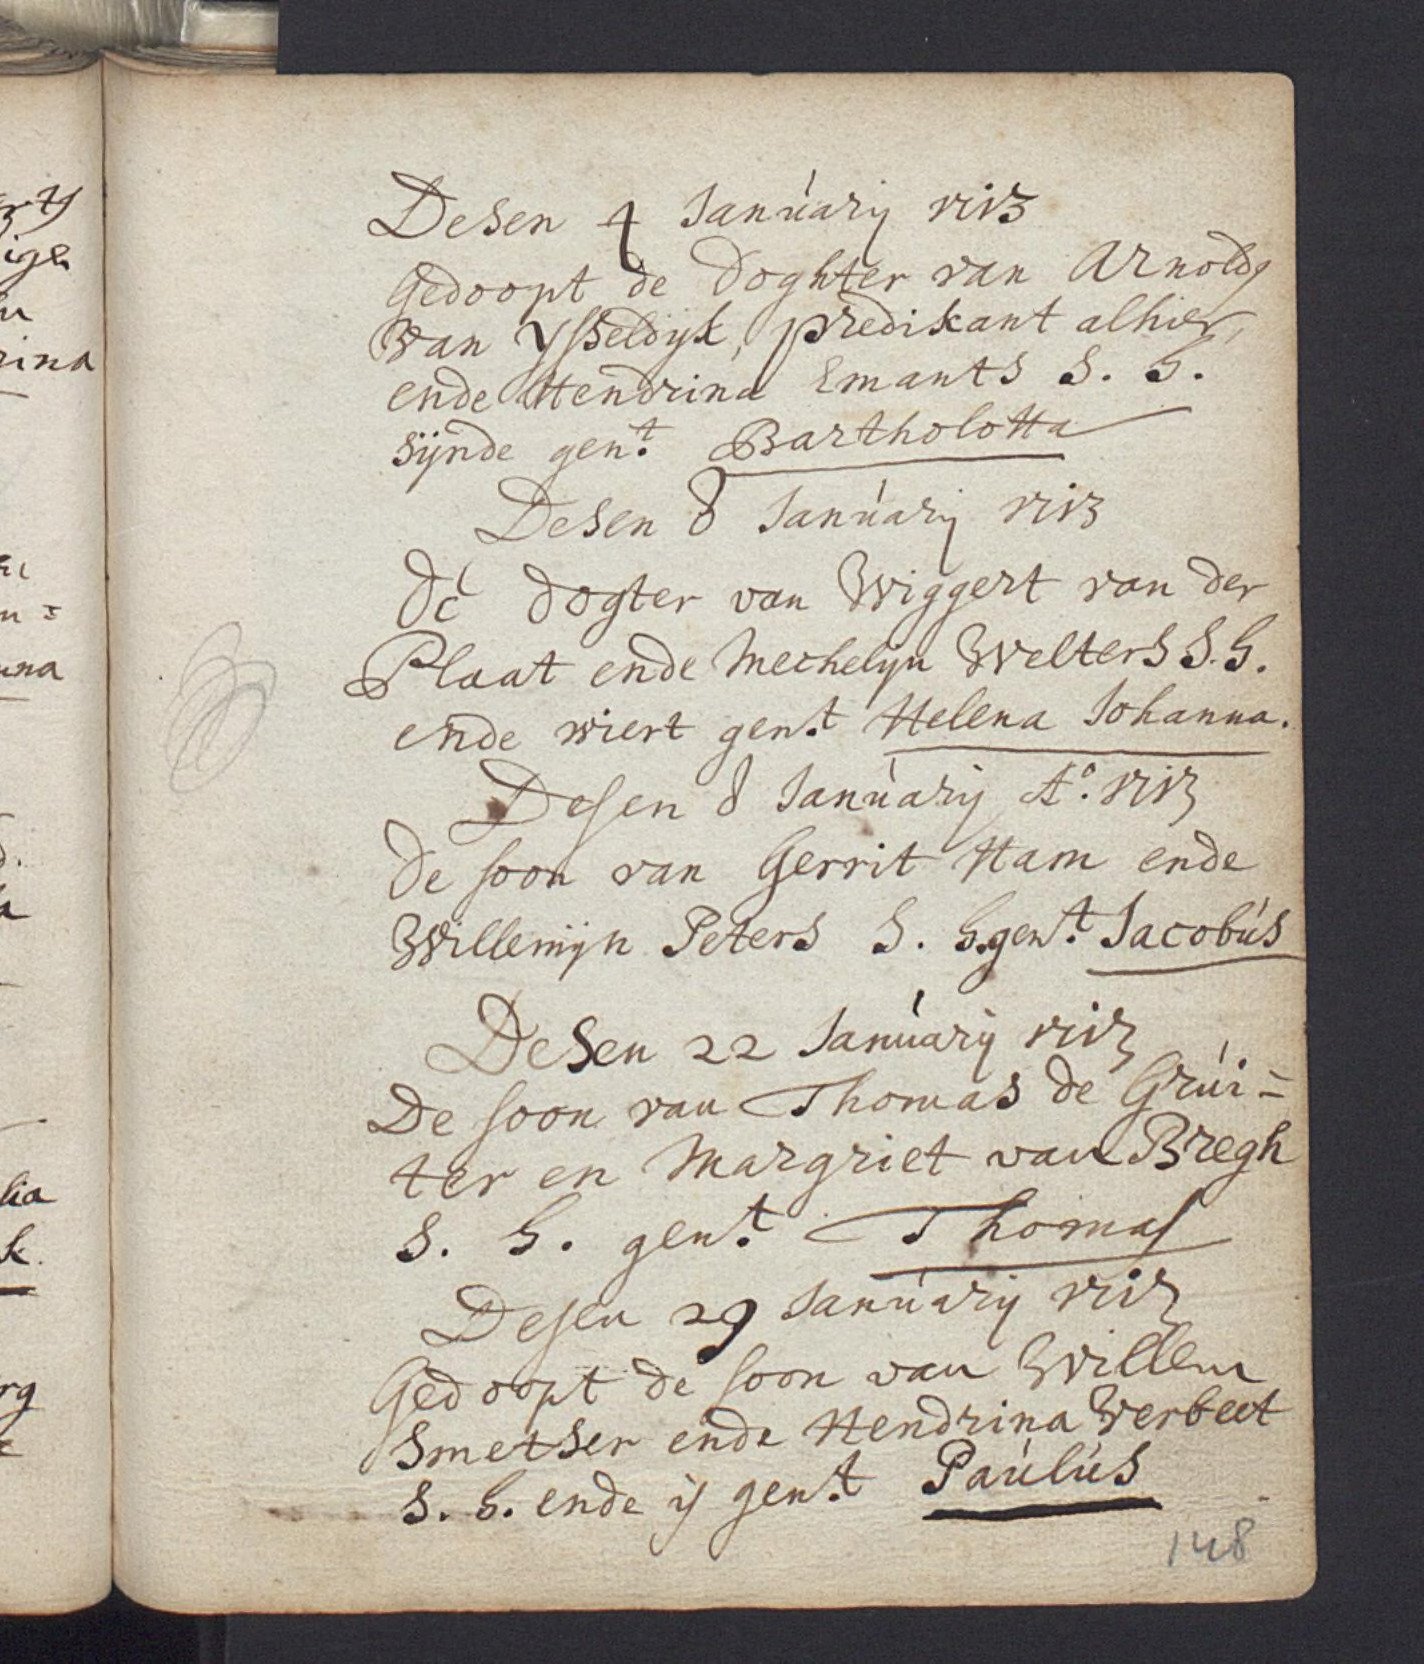 Desen 4 Januarij 1713
Gedoopt de Doghter van Arnoldq
van Ysseldyk, predikant alhier,
ende Hendrina Emants S. H.
sijnde gent. Bartholotta
Desen 8 Januarij 1713
De dogter van Wiggert van der
Plaat ende Mechelyn Welters S. H.
ende wiert gent. Helena Johanna.
Desen 8 Januarij Ao. 1713
De soon van Gerrit Ham ende
Willemijn Peters S. H. gent. Jacobus
Desen 22 Januarij 1713
De soon van Thomas de Grui=
ter en Margriet van Bregh
S. H. gent. Thomas
Desen 29 Januarij 1713
Gedoopt de soon van Willem
Smetser ende Hendrina Verbeet
S. H. ende is gent. Paulus
148